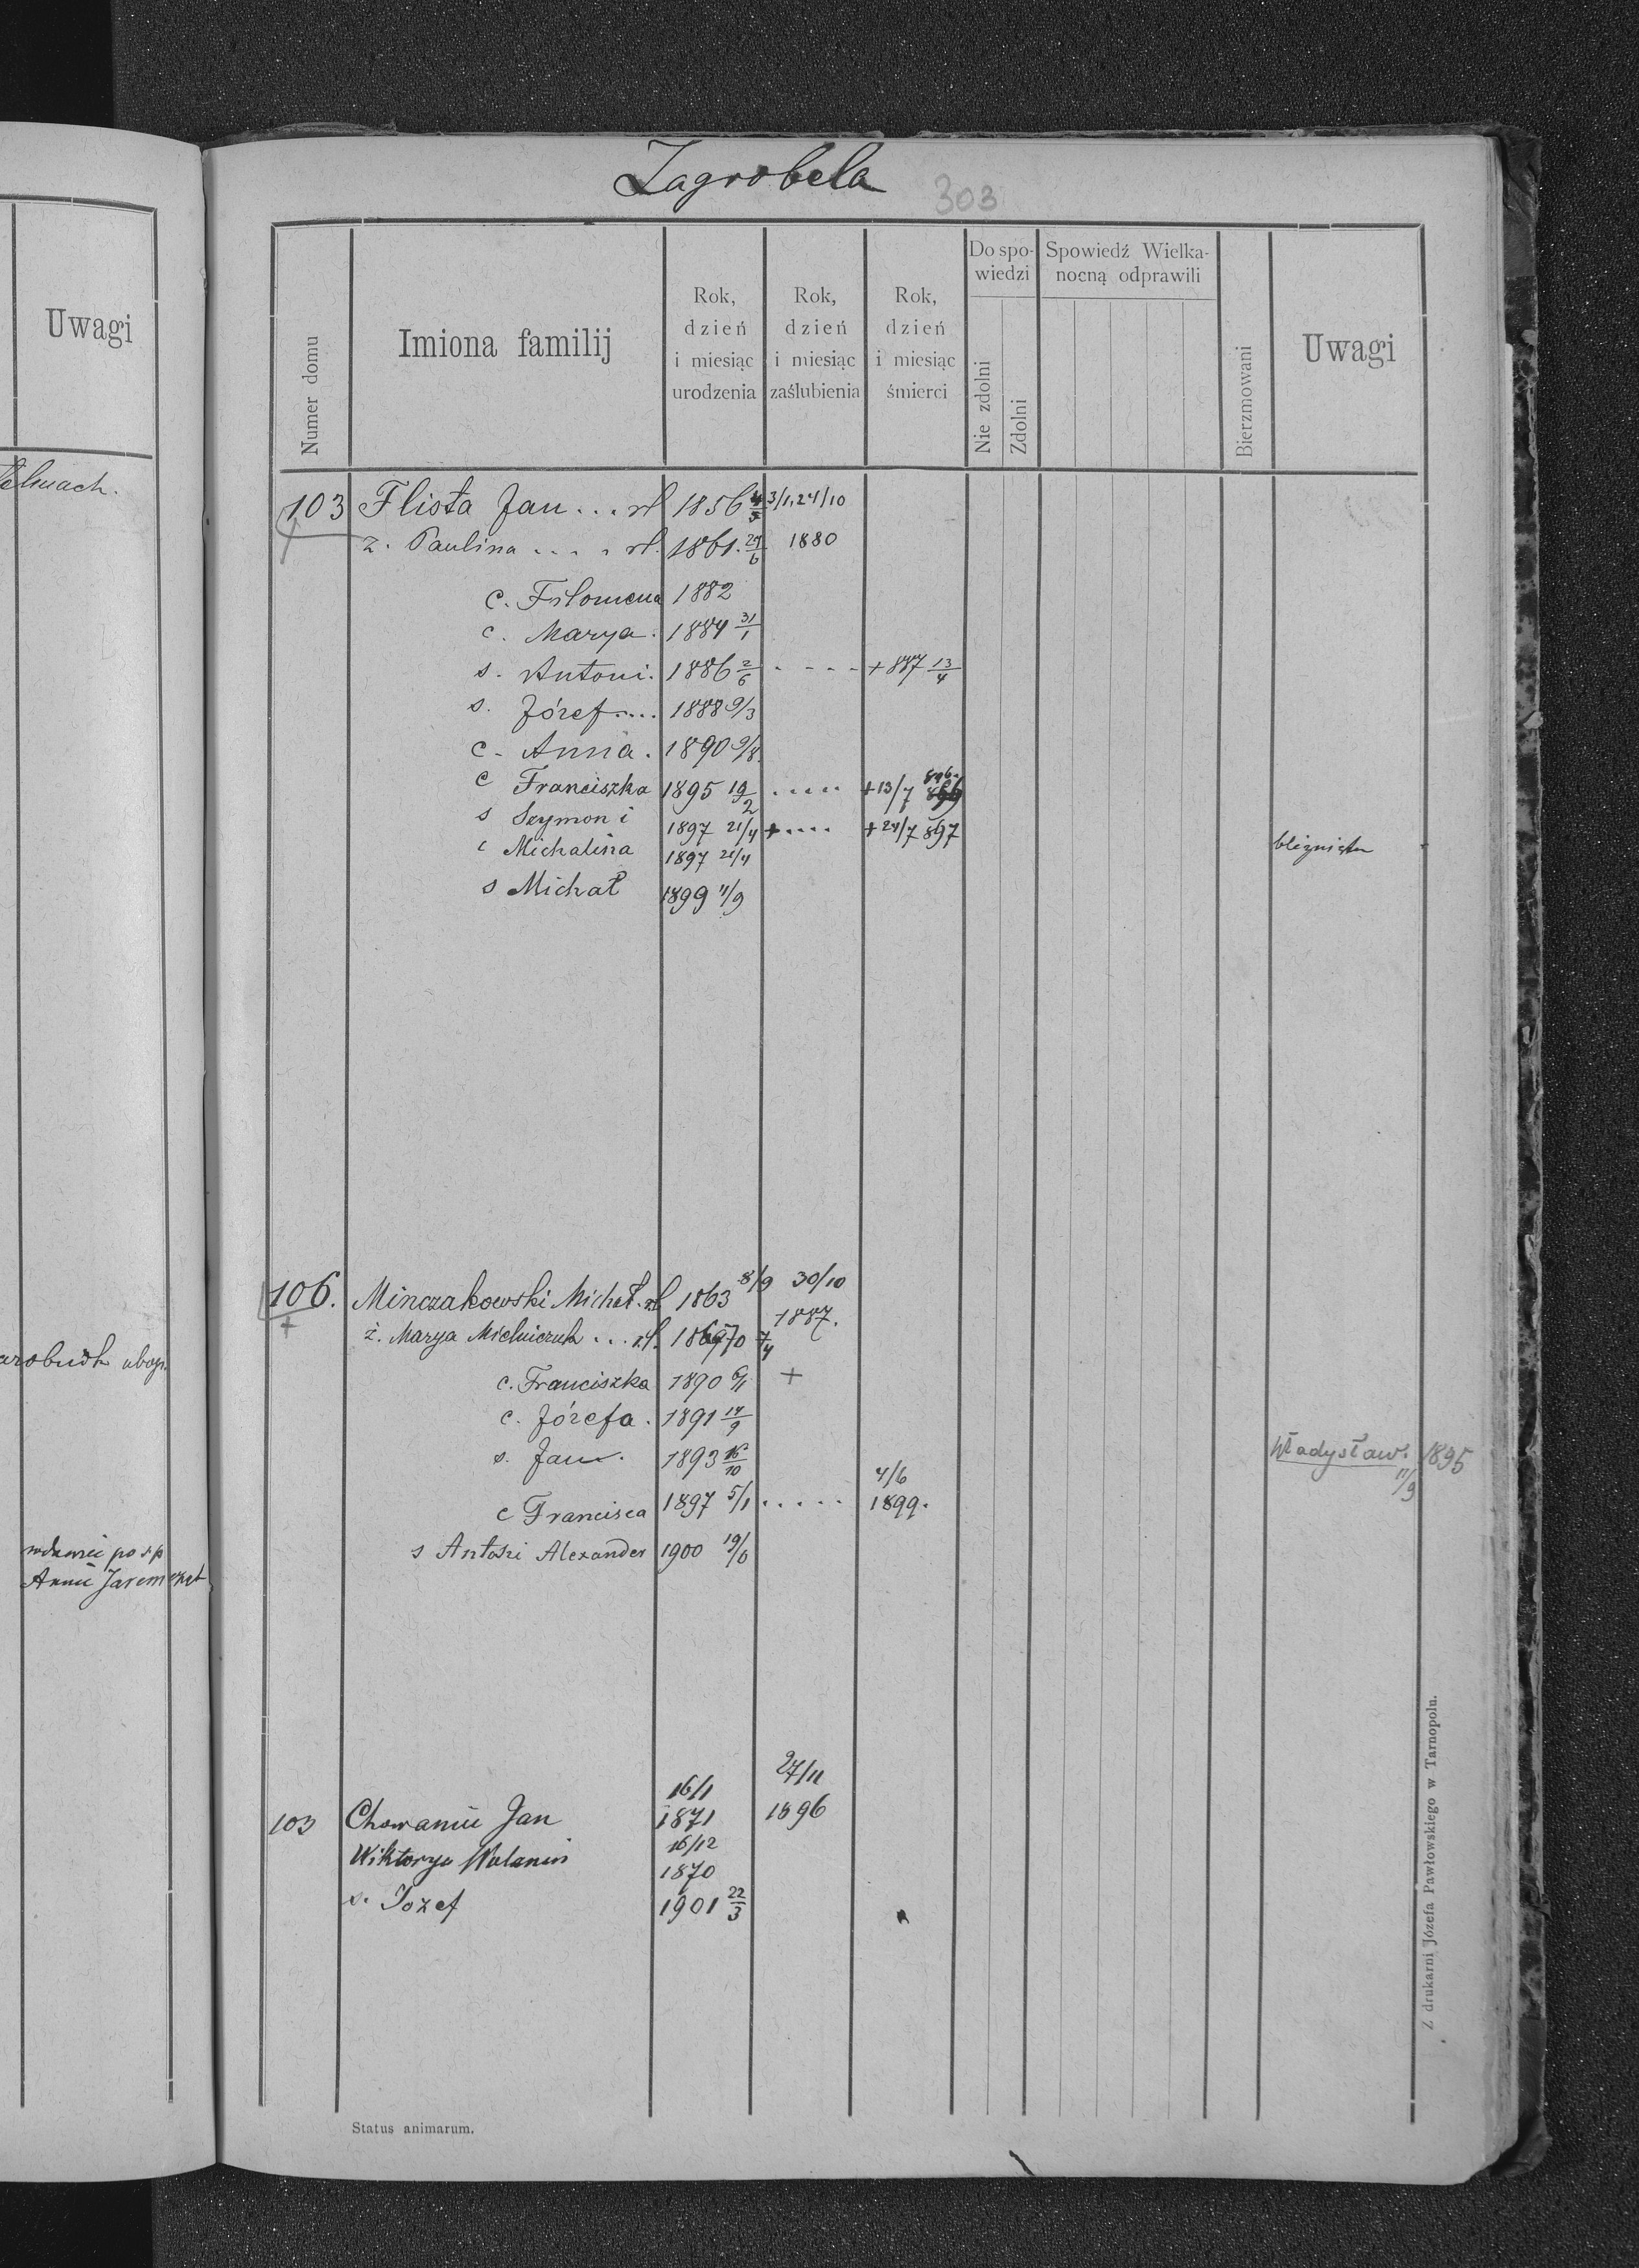 Uwagi
Zagrobela 303
Numer domu
Imiona familij
Rok, dzień i miesiąc urodzenia
Rok, dzień i miesiąc zaślubienia
Rok, dzień i miesiąc śmierci
Do spowiedzi
Nie zdolni
Zdolni
Spowiedź Wielkanocną odprawili
Bierzmowani
Uwagi
103 Flista Jan ... rł 1856 24/10
ż. Paulina .... rł. 1861. 6 1880
c. Filomena 1882
c. Marya. 1884 31/1
s. Antoni. 1886 2/6 - - - - +887 13/4
s. Józef.... 1888 9/3
c. Anna. 1890 9/8.
c Franciszka 1895 19/2 ..... +13/7 896.
s Szymon i 1897 21/4 +.... +24/7 897
c Michalina 1897 21/4 bliźnięta
s Michał 1899 11/9
106. Minczakowski Michał. rł 1863 8/9 30/10 1887.
ż. Marya Mielniczuk ... rł. 1870 7/4
c. Franciszka 1890 +
c. Józefa. 1891 14/9
s. Jan. 1893 16/10
Władysław. 1895 11/9
c Francisca 1897 5/1 ..... 4/6 1899.
s Antoni Alexander 1900 19/6
103 Chowaniec Jan 16/1 1871 27/11 1896
Wiktorya Wolanin 16/12 1870
s. Jozef 1901 22/3
po ś.p.
Annie
Status animarum.
Z drukarni Józefa Pawłowskiego w Tarnopolu.